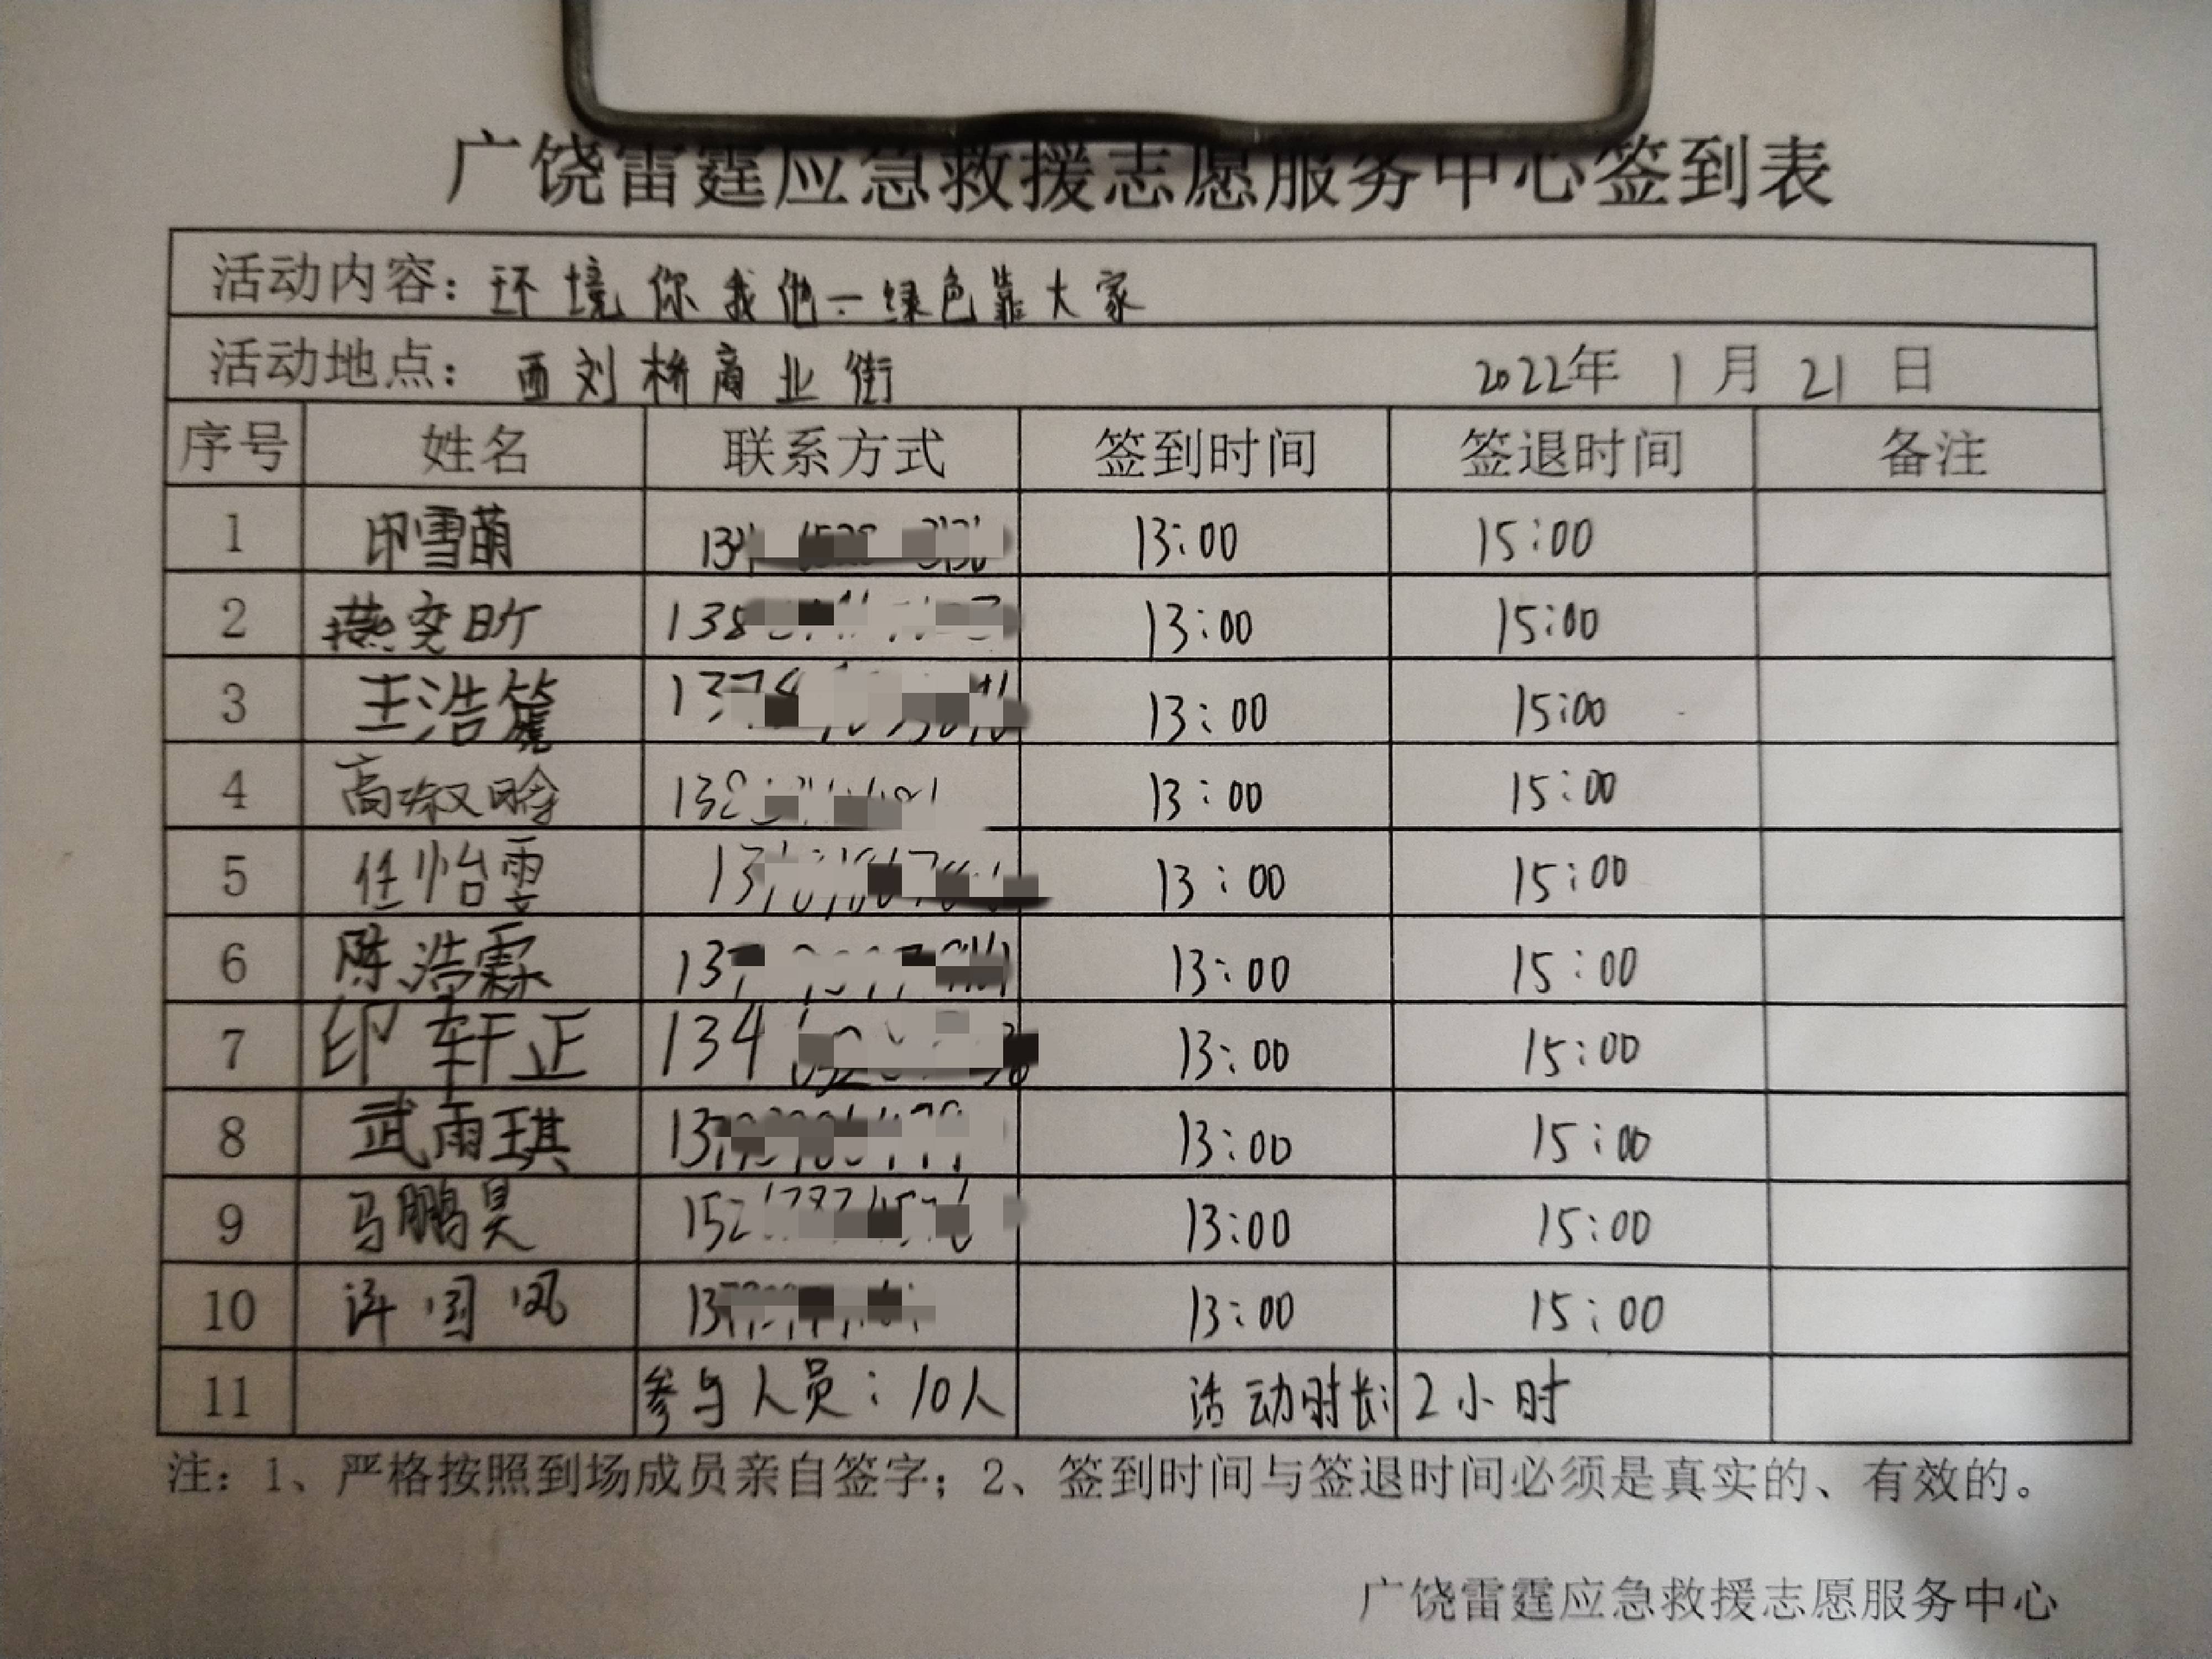 广饶雷霆应急救援志愿服务中心签到表
活动内容：环境你我他一绿色靠大家
活动地点：西刘桥商业街 2022年 1 月 21 日
序号 姓名 联系方式 签到时间 签退时间 备注
1 印雪萌 13:00 15:00
2 燕奕昕 138 13:00 15:00
3 王浩篪 13:00 15:00
4 高淑晗 13:00 15:00
5 任怡雯 13:00 15:00
6 陈浩霖 13:00 15:00
7 印轩正 134 13:00 15:00
8 武雨琪 13:00 15:00
9 马鹏昊 13:00 15:00
10 许国凤 13:00 15:00
11 参与人员：10人 活动时长：2小时
注：1、严格按照到场成员亲自签字；2、签到时间与签退时间必须是真实的、有效的。
广饶雷霆应急救援志愿服务中心